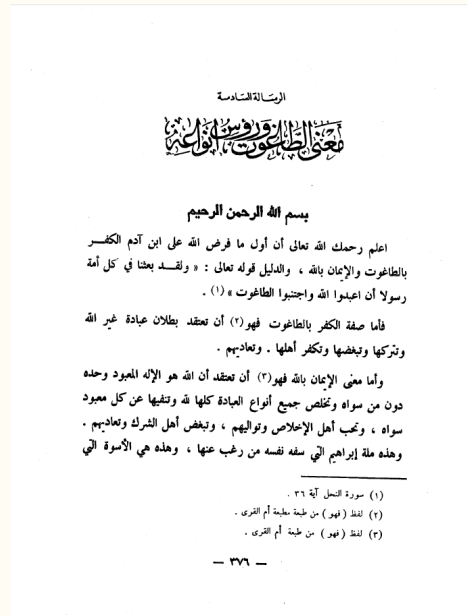 الرسالة السادسة
معنى الطاغوت ورؤس أنواعه
بسم الله الرحمن الرحيم
اعلم رحمك الله تعالى أن أول ما فرض الله على ابن آدم الكفر
بالطاغوت والإيمان بالله ، والدليل قوله تعالى : « ولقـد بعثنا في كل أمة
رسولا أن اعبدوا الله واجتنبوا الطاغوت » (١) .
فأما صفة الكفر بالطاغوت فهو(٢) أن تعتقد بطلان عبادة غير الله
وتتركها وتبغضها وتكفر أهلها . وتعاديهم .
وأما معنى الإيمان بالله فهو(٣) أن تعتقد أن الله هو الإله المعبود وحده
دون من سواه وتخلص جميع أنواع العبادة كلها لله وتنفيها عن كل معبود
سواه ، وتحب أهل الإخلاص وتواليهم ، وتبغض أهل الشرك وتعاديهم .
وهذه ملة إبراهيم التي سفه نفسه من رغب عنها ، وهذه هي الأسوة التي
(١) سورة النحل آية ٣٦ .
(٢) لفظ ( فهو ) من طبعة مطبعة أم القرى .
(٣) لفظ ( فهو ) من طبعة أم القرى .
— ٣٧٦ —